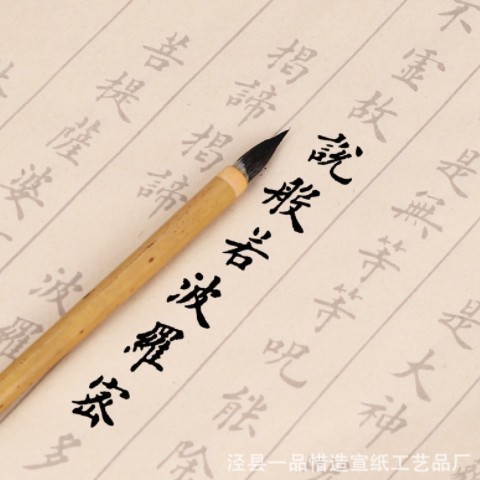 是大神
是無等等呪能除
不靈故說般若波羅密多
揭諦揭諦波羅
菩提薩婆
泾县一品惜造宣纸工艺品厂